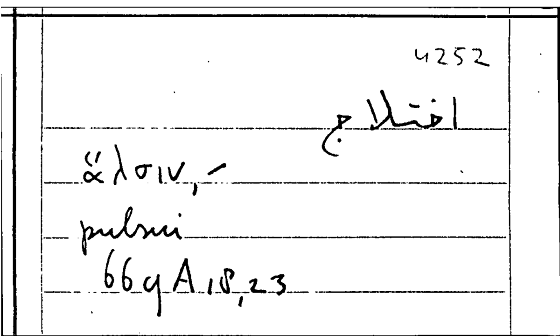 4252
اختلاج
ἅλσιν, –
pulsui
66q A 18, 23